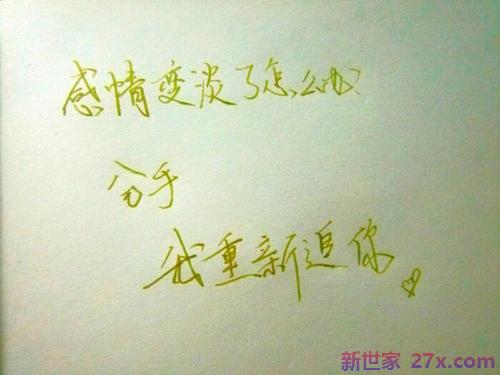 感情变淡了怎么办?
分手
我重新追你♡
新世家 27x.com